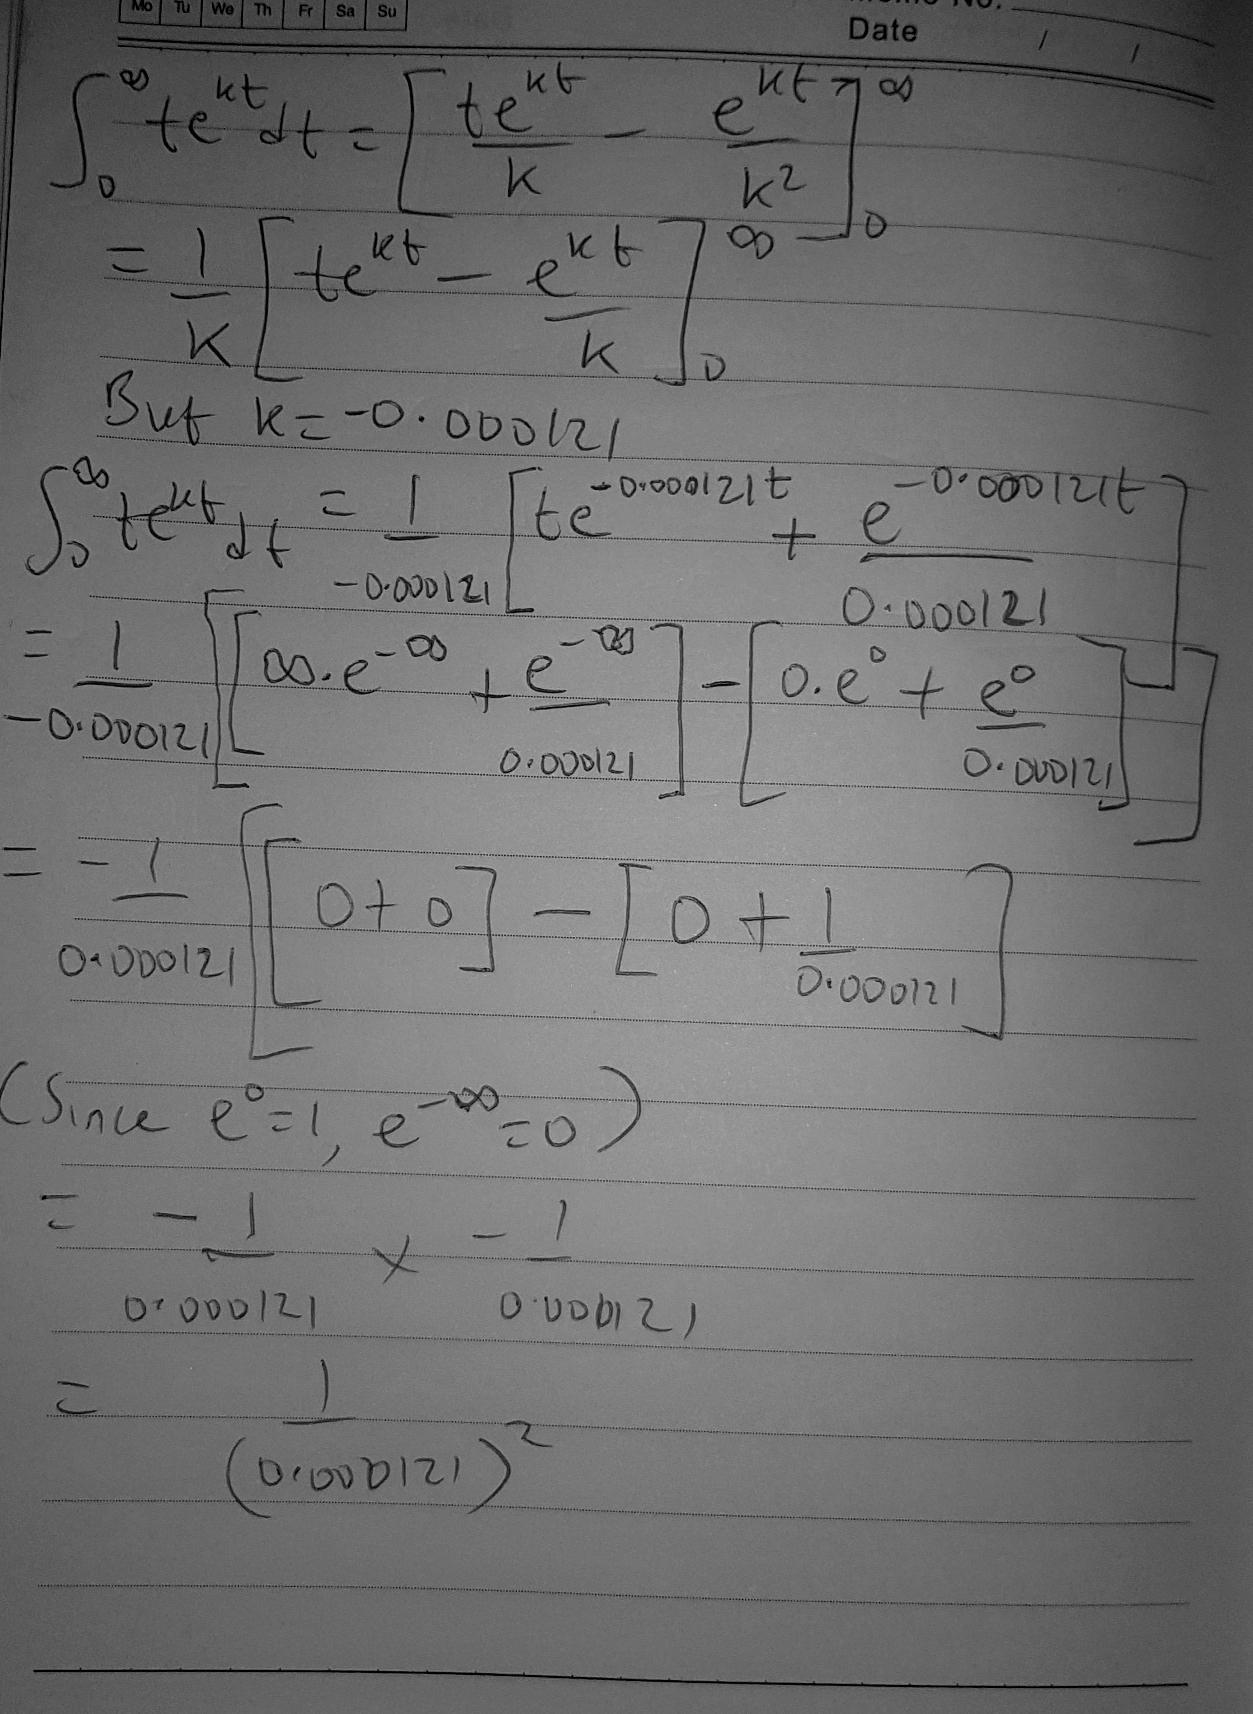 Mo Tu We Th Fr Sa Su
Date / /
∫₀^∞ te^{kt} dt = [te^{kt}/k − e^{kt}/k²]₀^∞
= 1/K [te^{kt} − e^{kt}/k]₀^∞
But k = -0.000121
∫₀^∞ te^{kt} dt = 1/-0.000121 [te^{-0.000121t} + e^{-0.000121t}/0.000121]
= 1/-0.000121 [[∞.e^{-∞} + e^{-∞}/0.000121] − [0.e⁰ + e⁰/0.000121]]
= -1/0.000121 [[0+0] − [0 + 1/0.000121]
(Since e⁰=1, e^{-∞}=0)
= -1/0.000121 × -1/0.000121
= 1/(0.000121)²